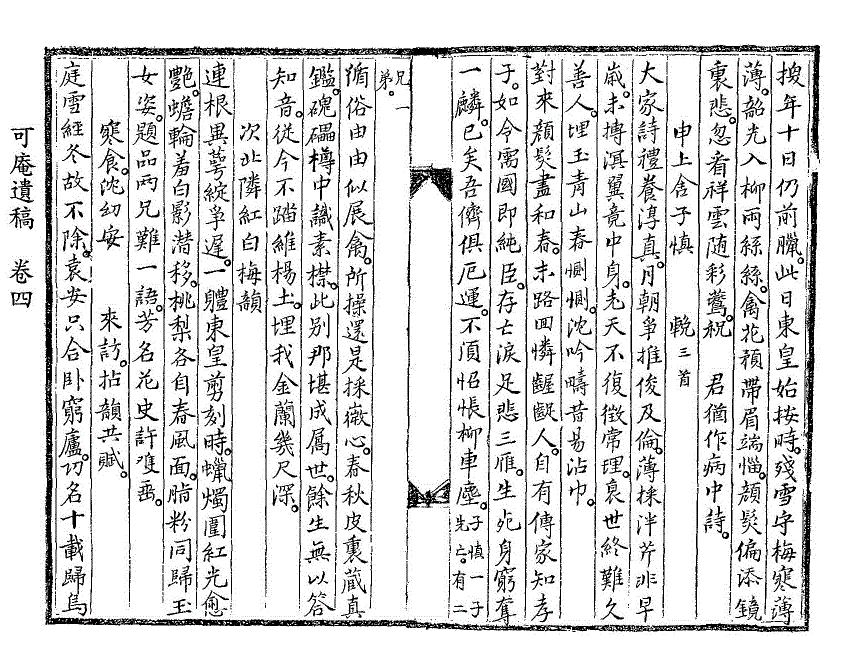 搜年十日仍前臘。此日東皇始按時。殘雪守梅寒薄
薄。韶光入柳雨絲絲。禽花預帶眉端惱。顔髮偏添鏡
裏悲。忽看祥雲随彩鸞。祝 君猶作病中詩。
申上舍子慎 輓三首
大家詩禮養淳真。月朝爭推俊及倫。薄採泮芹非早
歲。未摶溟翼竟中身。老天不復徵常理。衰世終難久
善人。埋玉青山春惻惻。沈吟疇昔易沾巾。
對來顔髮盡和春。末路回憐齷齪人。自有傳家知孝
子。如令需國即純臣。存亡淚足悲三雁。生死身窮奪
一麟。已矣吾儕俱厄運。不須怊悵柳車塵。子慎一子先亡。有二
兄一弟。
循俗由由似展禽。所操還是採薇心。春秋皮裏藏真
鑑。磈礧樽中識素襟。此別那堪成厲世。餘生無以答
知音。從今不踏維楊土。埋我金蘭幾尺深。
次北隣紅白梅韻
連根異萼綻爭遲。一體東皇剪刻時。蠟燭圍紅光愈
艶。蟾輪羞白影潜移。桃梨各自春風面。脂粉同歸玉
女姿。題品兩兄難一語。芳名花史許雙垂。
寒食。沈幼安 來訪。拈韻共賦。
庭雪經冬故不除。袁安只合卧窮廬。功名十載歸烏
可庵遺稿 卷四